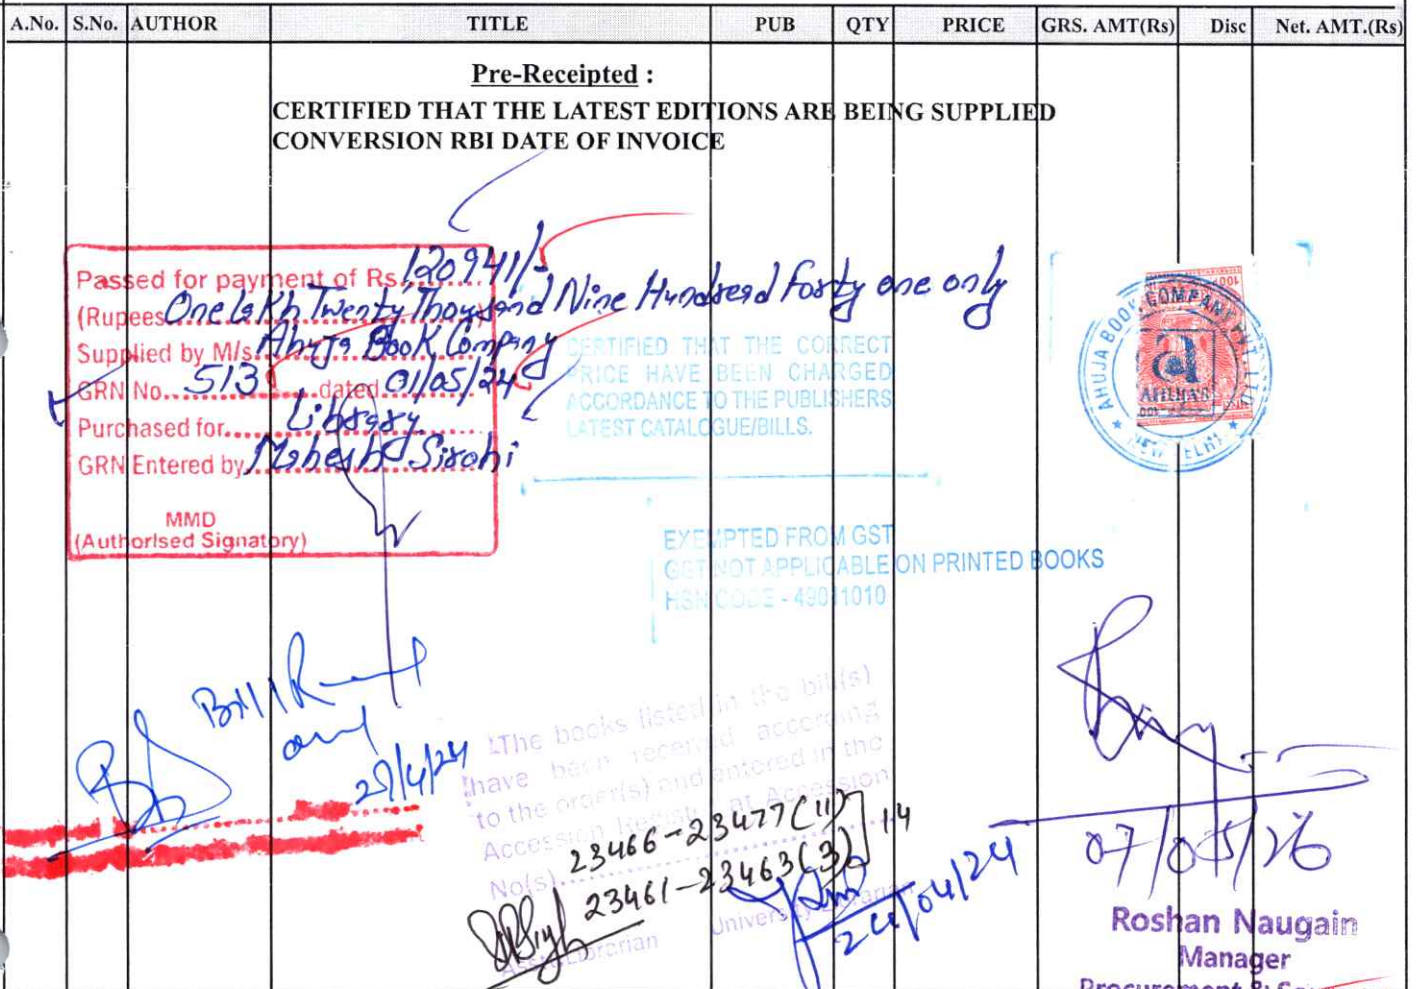 A.No. S.No. AUTHOR TITLE PUB QTY PRICE GRS. AMT(Rs) Disc Net. AMT.(Rs)
Pre-Receipted :
CERTIFIED THAT THE LATEST EDITIONS ARE BEING SUPPLIED
CONVERSION RBI DATE OF INVOICE
Passed for payment of Rs. 120941/-
(Rupees One lakh Twenty Thousand Nine Hundred Forty one only
Supplied by M/s Ahuja Book Company
GRN No. 513 dated 01/05/24
Purchased for Library
GRN Entered by Mahesh Sirohi
MMD
(Authorised Signatory)
CERTIFIED THAT THE CORRECT
PRICE HAVE BEEN CHARGED
ACCORDANCE TO THE PUBLISHERS
LATEST CATALOGUE/BILLS.
AHUJA BOOK COMPANY PVT. LTD.
NEW DELHI
EXEMPTED FROM GST
GST NOT APPLICABLE ON PRINTED BOOKS
HSN CODE - 49011010
Bill
The books listed in the bill(s)
have been received according
to the order(s) and entered in the
Accession Register at Accession
No(s)
23466-23477(11)
23461-23463(3)
14
Asst. Librarian
University Librarian
24/04/24
Roshan Naugain
Manager